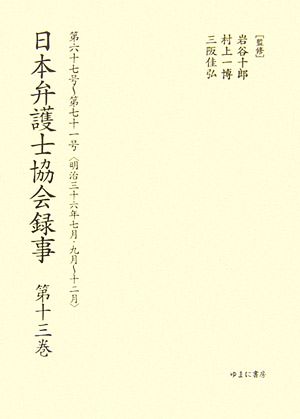 [監修]
岩谷十郎
村上一博
三阪佳弘
第六十七号〜第七十一号〈明治三十六年七月・九月〜十二月〉
日本弁護士協会録事 第十三巻
ゆまに書房